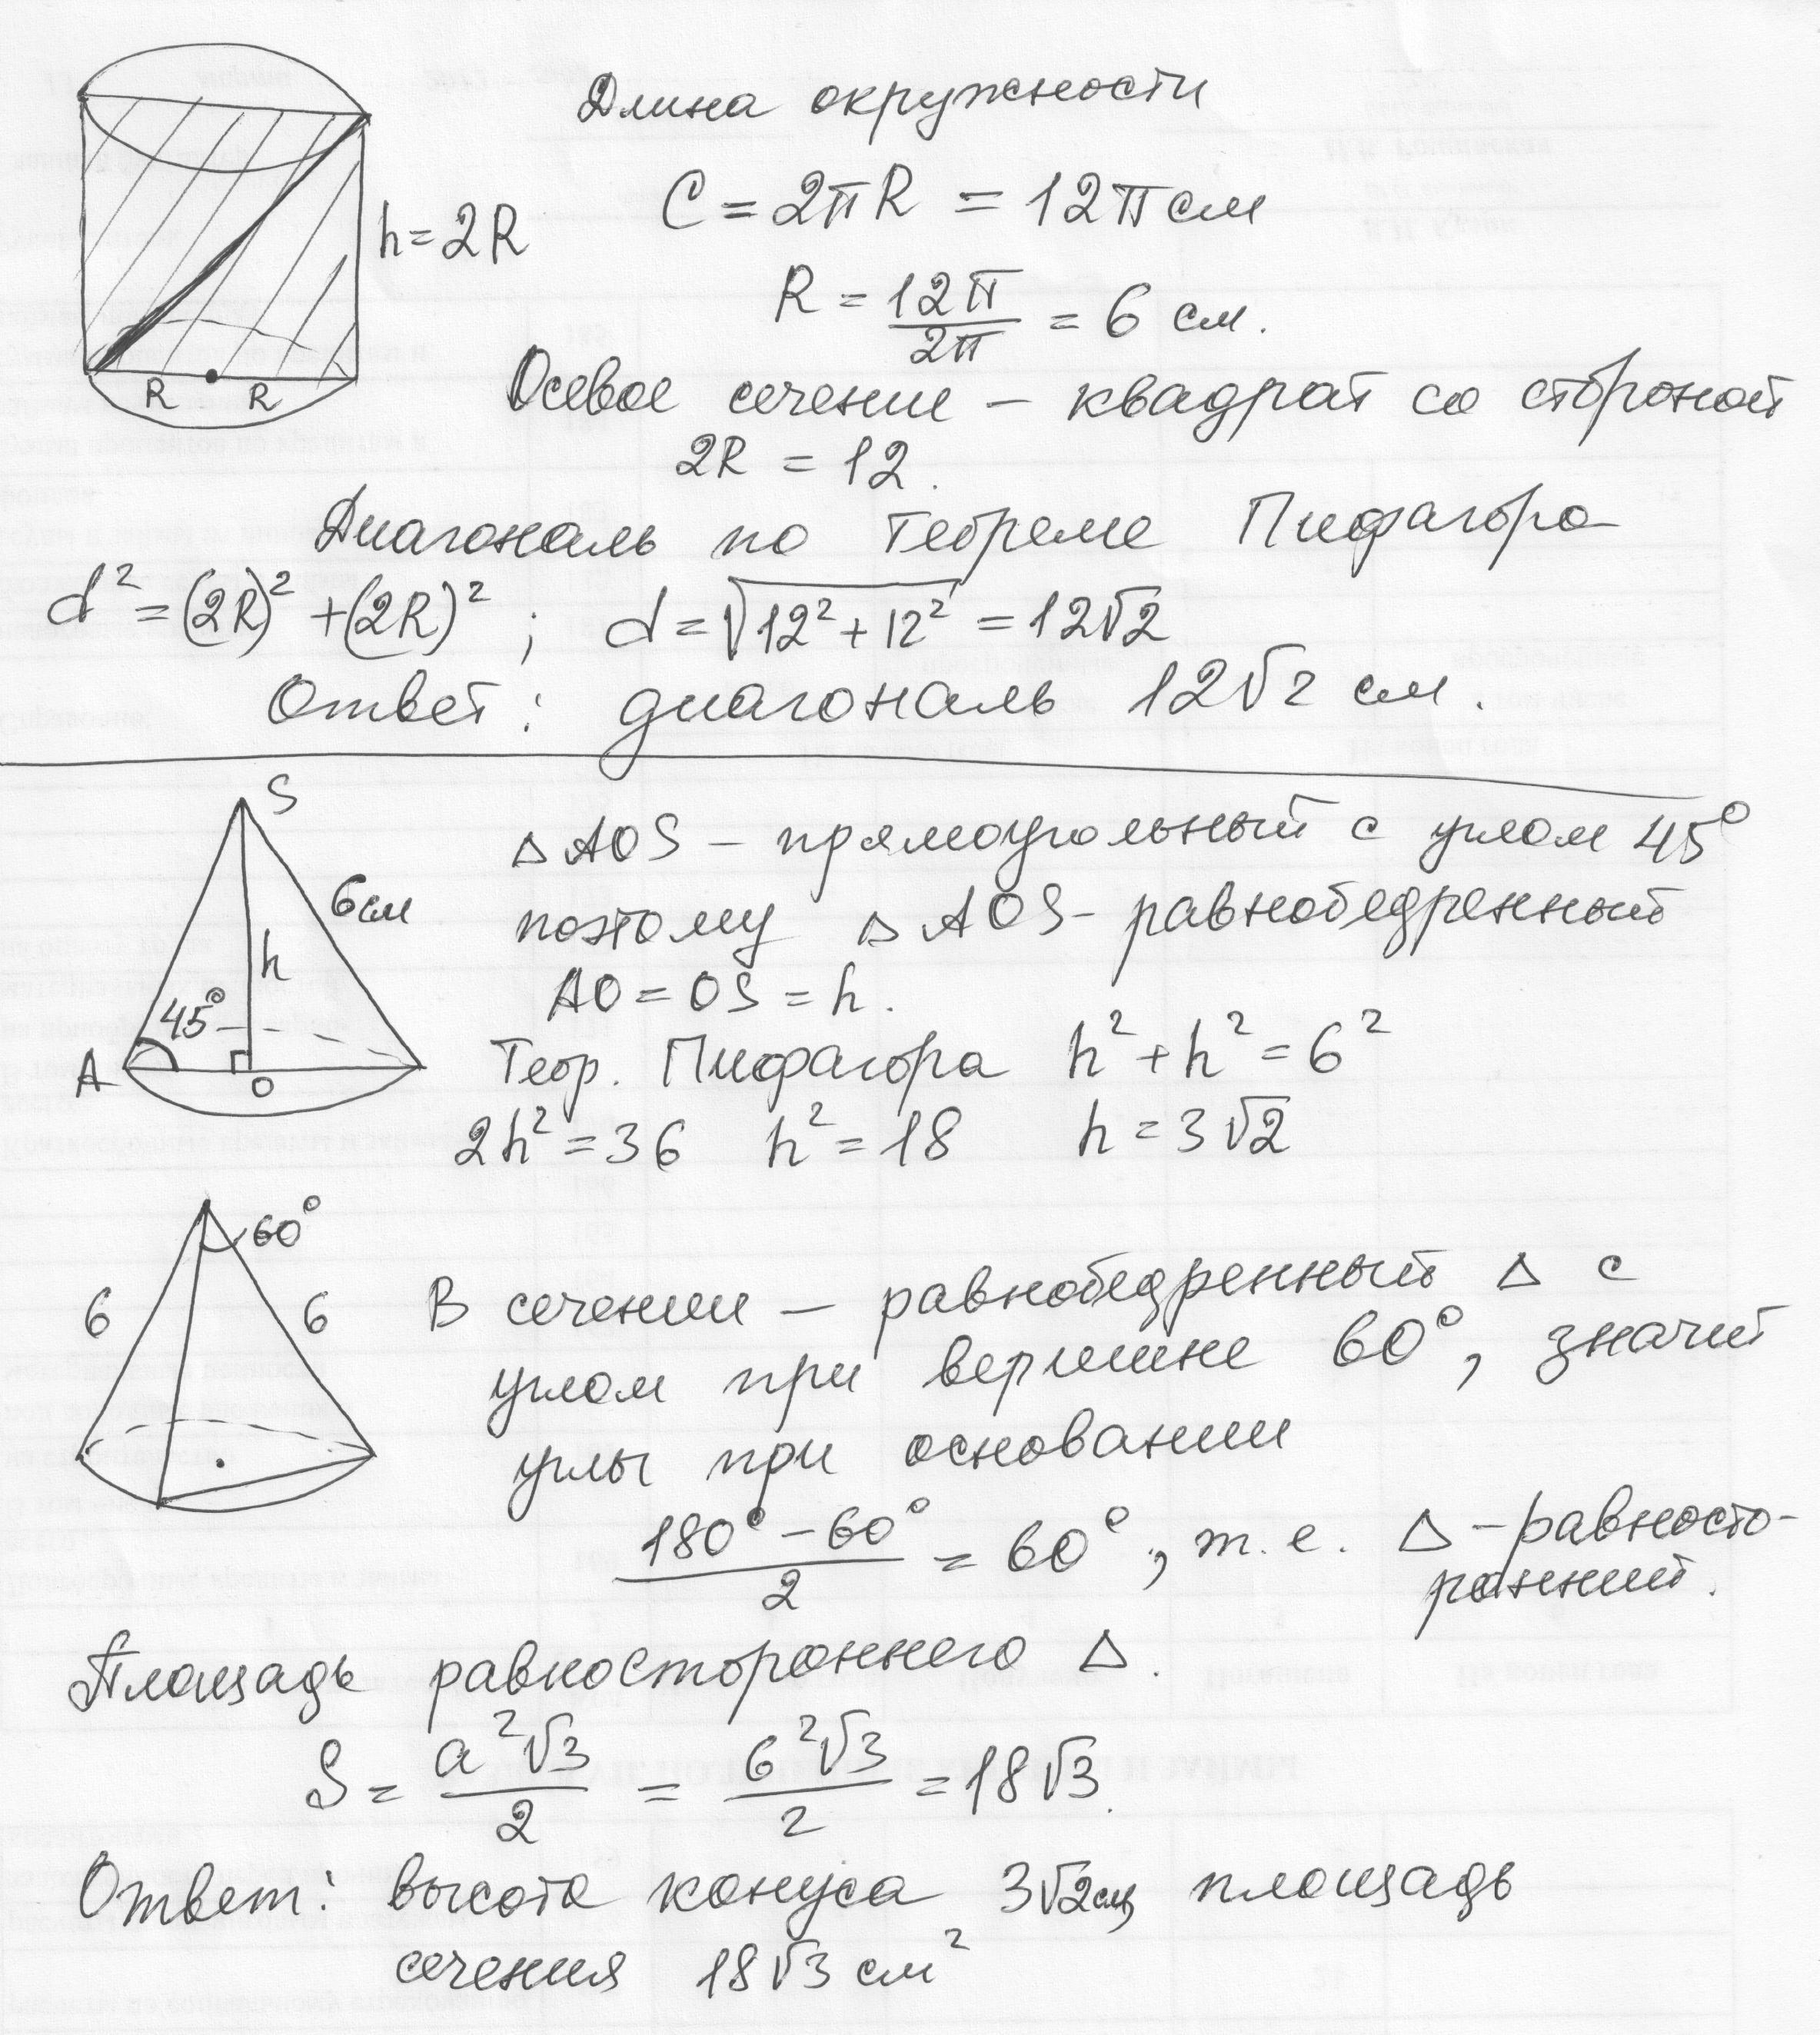 Длина окружности
C = 2πR = 12π см
h = 2R
R = 12π/2π = 6 см.
R R
Осевое сечение – квадрат со стороной
2R = 12.
Диагональ по теореме Пифагора
d² = (2R)² + (2R)² ; d = √(12² + 12²) = 12√2
Ответ: диагональ 12√2 см.
S
△AOS – прямоугольный с углом 45°
6 см
поэтому △AOS – равнобедренный
h
AO = OS = h.
45°
A O
Теор. Пифагора h² + h² = 6²
2h² = 36 h² = 18 h = 3√2
60°
6 6
В сечении – равнобедренный △ с
углом при вершине 60°, значит
углы при основании
(180° – 60°)/2 = 60°, т.е. △ – равносто-
ронний.
Площадь равностороннего △.
S = a²√3/2 = 6²√3/2 = 18√3.
Ответ: высота конуса 3√2 см, площадь
сечения 18√3 см²